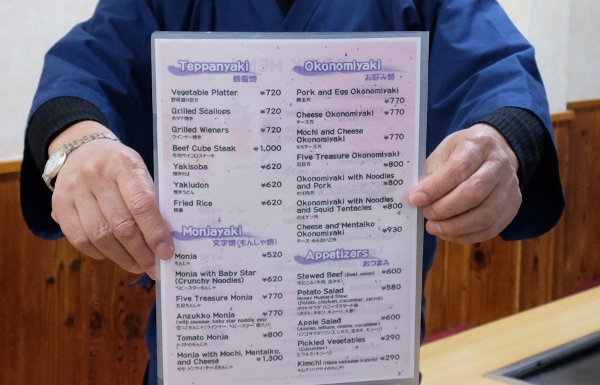 Teppanyaki
鉄板焼
Vegetable Platter ¥720
野菜盛り合せ
Grilled Scallops ¥720
ホタテ焼き
Grilled Wieners ¥720
ウインナー焼き
Beef Cube Steak ¥1,000
牛肉サイコロステーキ
Yakisoba ¥620
焼きそば
Yakiudon ¥620
焼きうどん
Fried Rice ¥620
焼飯
Monjayaki
文字焼(もんじゃ焼)
Monja ¥520
もんじゃ
Monja with Baby Star
(Crunchy Noodles) ¥620
ベビースターもんじゃ
Five Treasure Monja ¥770
五目もんじゃ
Anzukko Monja ¥770
Tomato Monja ¥800
トマトのもんじゃ
Monja with Mochi, Mentaiko,
and Cheese ¥1,300
Okonomiyaki
お好み焼
Pork and Egg Okonomiyaki
豚玉天 ¥770
Cheese Okonomiyaki ¥770
チーズ天
Mochi and Cheese
Okonomiyaki ¥770
もちチーズ天
Five Treasure Okonomiyaki
五目天 ¥800
Okonomiyaki with Noodles
and Pork ¥800
Okonomiyaki with Noodles
and Squid Tentacles ¥800
Cheese and Mentaiko
Okonomiyaki ¥930
チーズ・めんたいこ天
Appetizers
おつまみ
Stewed Beef ¥600
Potato Salad ¥580
Honey Mustard Stew
(Potato, chicken, cucumber, carrot)
Apple Salad ¥600
(Apples, lettuce, onions, cucumber)
Pickled Vegetables ¥290
(Cucumber)
Kimchi ¥290